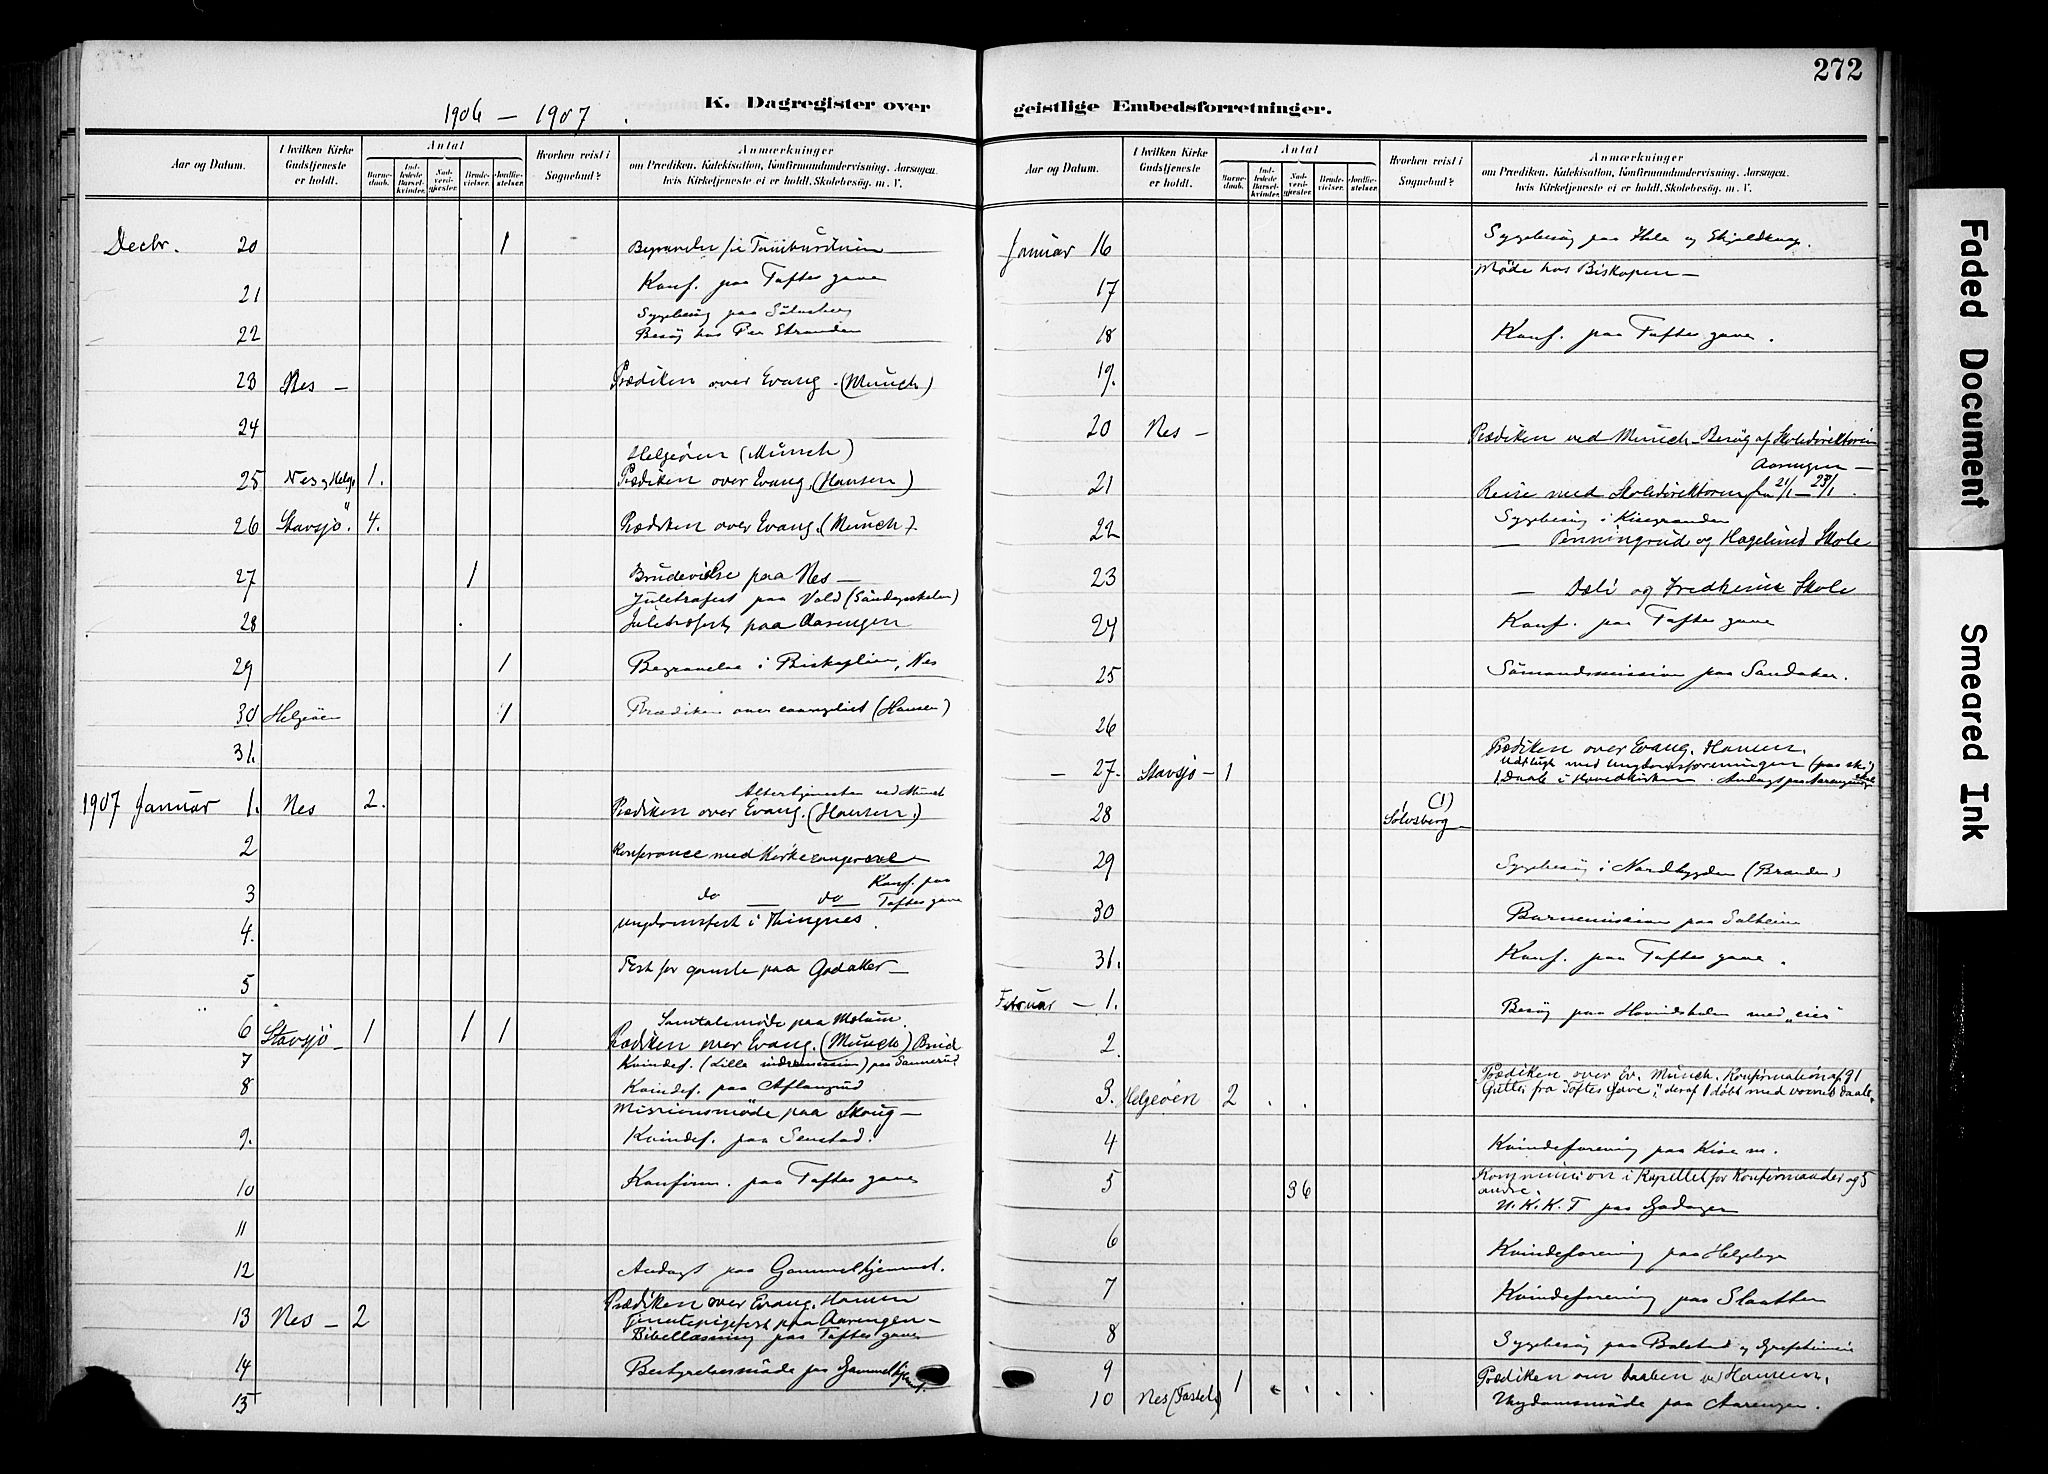 272
1906 – 1907.
K. Dagregister over geistlige Embedsforretninger.
Aar og Datum.
I hvilken Kirke Gudstjeneste er holdt.
Antal
Barnedaab.
Indledede Barselkvinder.
Nadverdgjester.
Brudevielser.
Jordfæstelser.
Hvorhen reist i Sognebud?
Anmærkninger
om Prædiken, Katekisation, Konfirmandundervisning, Aarsagen,
hvis Kirketjeneste ei er holdt, Skolebesøg m. V.
Decbr. 20 1 Begravelse
21 Konf. paa Toftes gave
Sygebesøg paa Sølvsberg
22 Besøg hos Per Stranden
23 Nes – Prædiken over Evang. (Munch)
24
Helgeøen (Munch)
25 Nes og Helgø 1. Prædiken over Evang. (Hansen)
26 Stavsjø. 4. Prædiken over Evang. (Munch).
27 1 Brudevielse paa Nes –
Juletræfest paa Vold (Søndagsskolen)
28 Juletræfest paa Aarengen
29 1 Begravelse i Biskoplien, Nes
30 Helgeøen 1 Prædiken over evangeliet (Hansen)
31.
Altertjenesten ved Munch
1907 Januar 1. Nes 2. Prædiken over Evang. (Hansen.)
2 Konferance med Kirkesangerne
3 do — do — Konf. paa Toftes gave
4. Ungdomsfest i Thingnes.
5 Fest for gamle paa Godaker –
Samtalemøde paa Mælum.
6 Stavsjø – 1 1 1 Prædiken over Evang. (Munch) Brud
7 Kvindef. (Lille indremission) paa Sannerud
8 Kvindef. paa Aflangrud
Missionsmøde paa Skoug –
9. Kvindef. paa Senstad.
10 Konfirm. paa Toftes gave
11
12 Andagt paa Gammelhjemmet.
13 Nes – 2 Prædiken over Evang. Hansen
Tjenstepigefest paa Aarengen –
Bibellæsning paa Toftes gave
14 Bestyrelsesmøde paa Gammelhjemmet.
15
Aar og Datum.
I hvilken Kirke Gudstjeneste er holdt.
Antal
Barnedaab.
Indledede Barselkvinder.
Nadverdgjester.
Brudevielser.
Jordfæstelser.
Hvorhen reist i Sognebud?
Anmærkninger
om Prædiken, Katekisation, Konfirmandundervisning, Aarsagen,
hvis Kirketjeneste ei er holdt, Skolebesøg m. V.
Januar 16 Sygebesøg paa Hole og
17 Møde hos Biskopen –
18 Konf. paa Toftes gave.
19.
20 Nes – Prædiken ved Munch – Besøg af Skoledirektøren
Aarengen –
21 Reise med Skoledirektøren fra 21/1 – 23/1.
Sygebesøg i Kisegranden
22 – Penningrud og Hagelund Skole
23 – Dæli og Fredheim Skole
24 Konf. paa Toftes gave
25 Sømandsmission paa Sandaker.
26
Prædiken over Evang. Hansen.
– 27. Stavsjø – 1 Udflugt med Ungdomsforeningen (paa ski)
1 Daab i Hovedkirken. Andagt paa Aarengen
28 (1) Sølvsberg –
29 Sygebesøg i Nordbygden (Branden)
30 Barnemission paa Solheim
31. Konf. paa Toftes gave.
Februar – 1. Besøg paa
2.
Prædiken over Ev. Munch. Konfirmation af 31
3. Helgeøen 2 Gutter fra Toftes Gave, deraf 1 døbt med voxnes daab.
4 Kvindeforening paa Kise m.
5 36 Kommunion i Kapellet for Konfirmander og 5 andre.
U.K.K.T paa
6 Kvindeforening paa Helgeleye
7 Kvindeforening paa Slaatten
8 Sygebesøg paa Balstad og
9
10 Nes (Fastel.) 1 Prædiken om daaben ved Hansen.
Ungdomsmøde paa Aarengen.
Faded Document
Smeared Ink